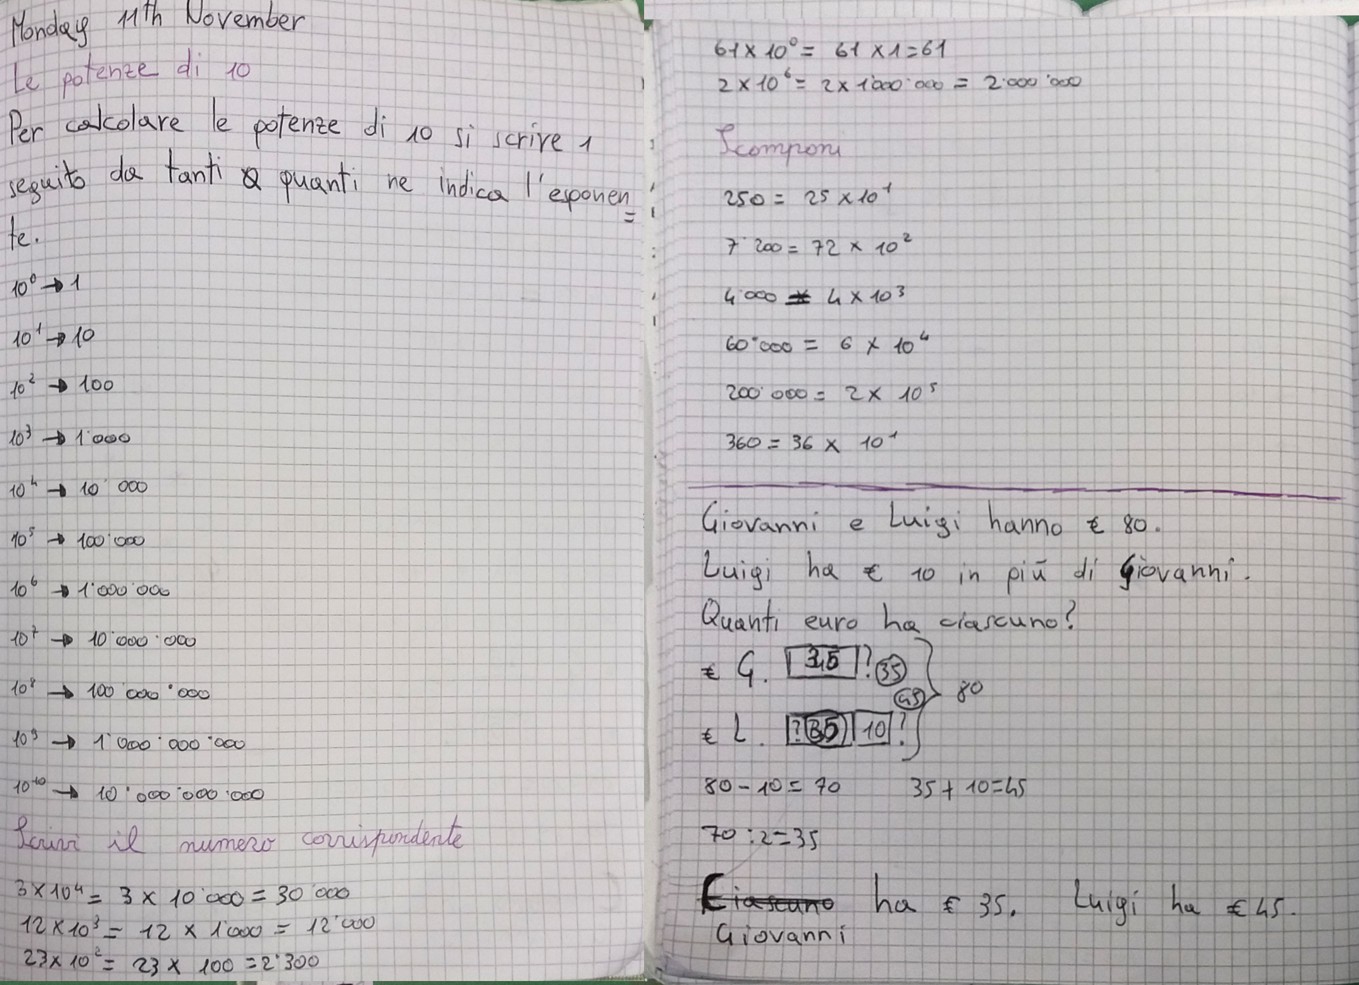 Monday 11th November
Le potenze di 10
Per calcolare le potenze di 10 si scrive 1
seguito da tanti 0 quanti ne indica l'esponen=
te.
10⁰ → 1
10¹ → 10
10² → 100
10³ → 1˙000
10⁴ → 10˙000
10⁵ → 100˙000
10⁶ → 1˙000˙000
10⁷ → 10˙000˙000
10⁸ → 100˙000˙000
10⁹ → 1˙000˙000˙000
10¹⁰ → 10˙000˙000˙000
Scrivi il numero corrispondente
3×10⁴ = 3 × 10˙000 = 30˙000
12×10³ = 12 × 1˙000 = 12˙000
23×10² = 23 × 100 = 2˙300
61×10⁰ = 61 × 1 = 61
2×10⁶ = 2 × 1˙000˙000 = 2˙000˙000
Scomponi
250 = 25 × 10¹
7˙200 = 72 × 10²
4˙000 = 4 × 10³
60˙000 = 6 × 10⁴
200˙000 = 2 × 10⁵
360 = 36 × 10¹
Giovanni e Luigi hanno € 80.
Luigi ha € 10 in più di Giovanni.
Quanti euro ha ciascuno?
€ G. 35 ? 35
45 80
€ L. ? 35 10 ?
80 - 10 = 70 35 + 10 = 45
70 : 2 = 35
Ciascuno ha € 35. Luigi ha € 45.
Giovanni